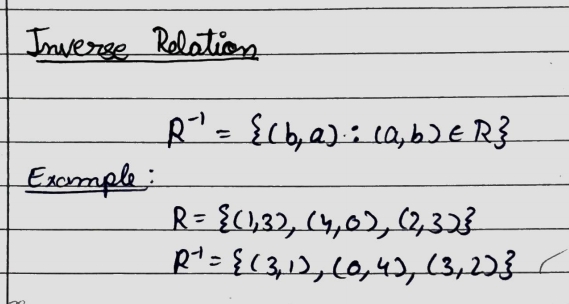 Inverse Relation
R⁻¹ = {(b,a) : (a,b) ∈ R}
Example :
R = {(1,3), (4,0), (2,3)}
R⁻¹ = {(3,1), (0,4), (3,2)}